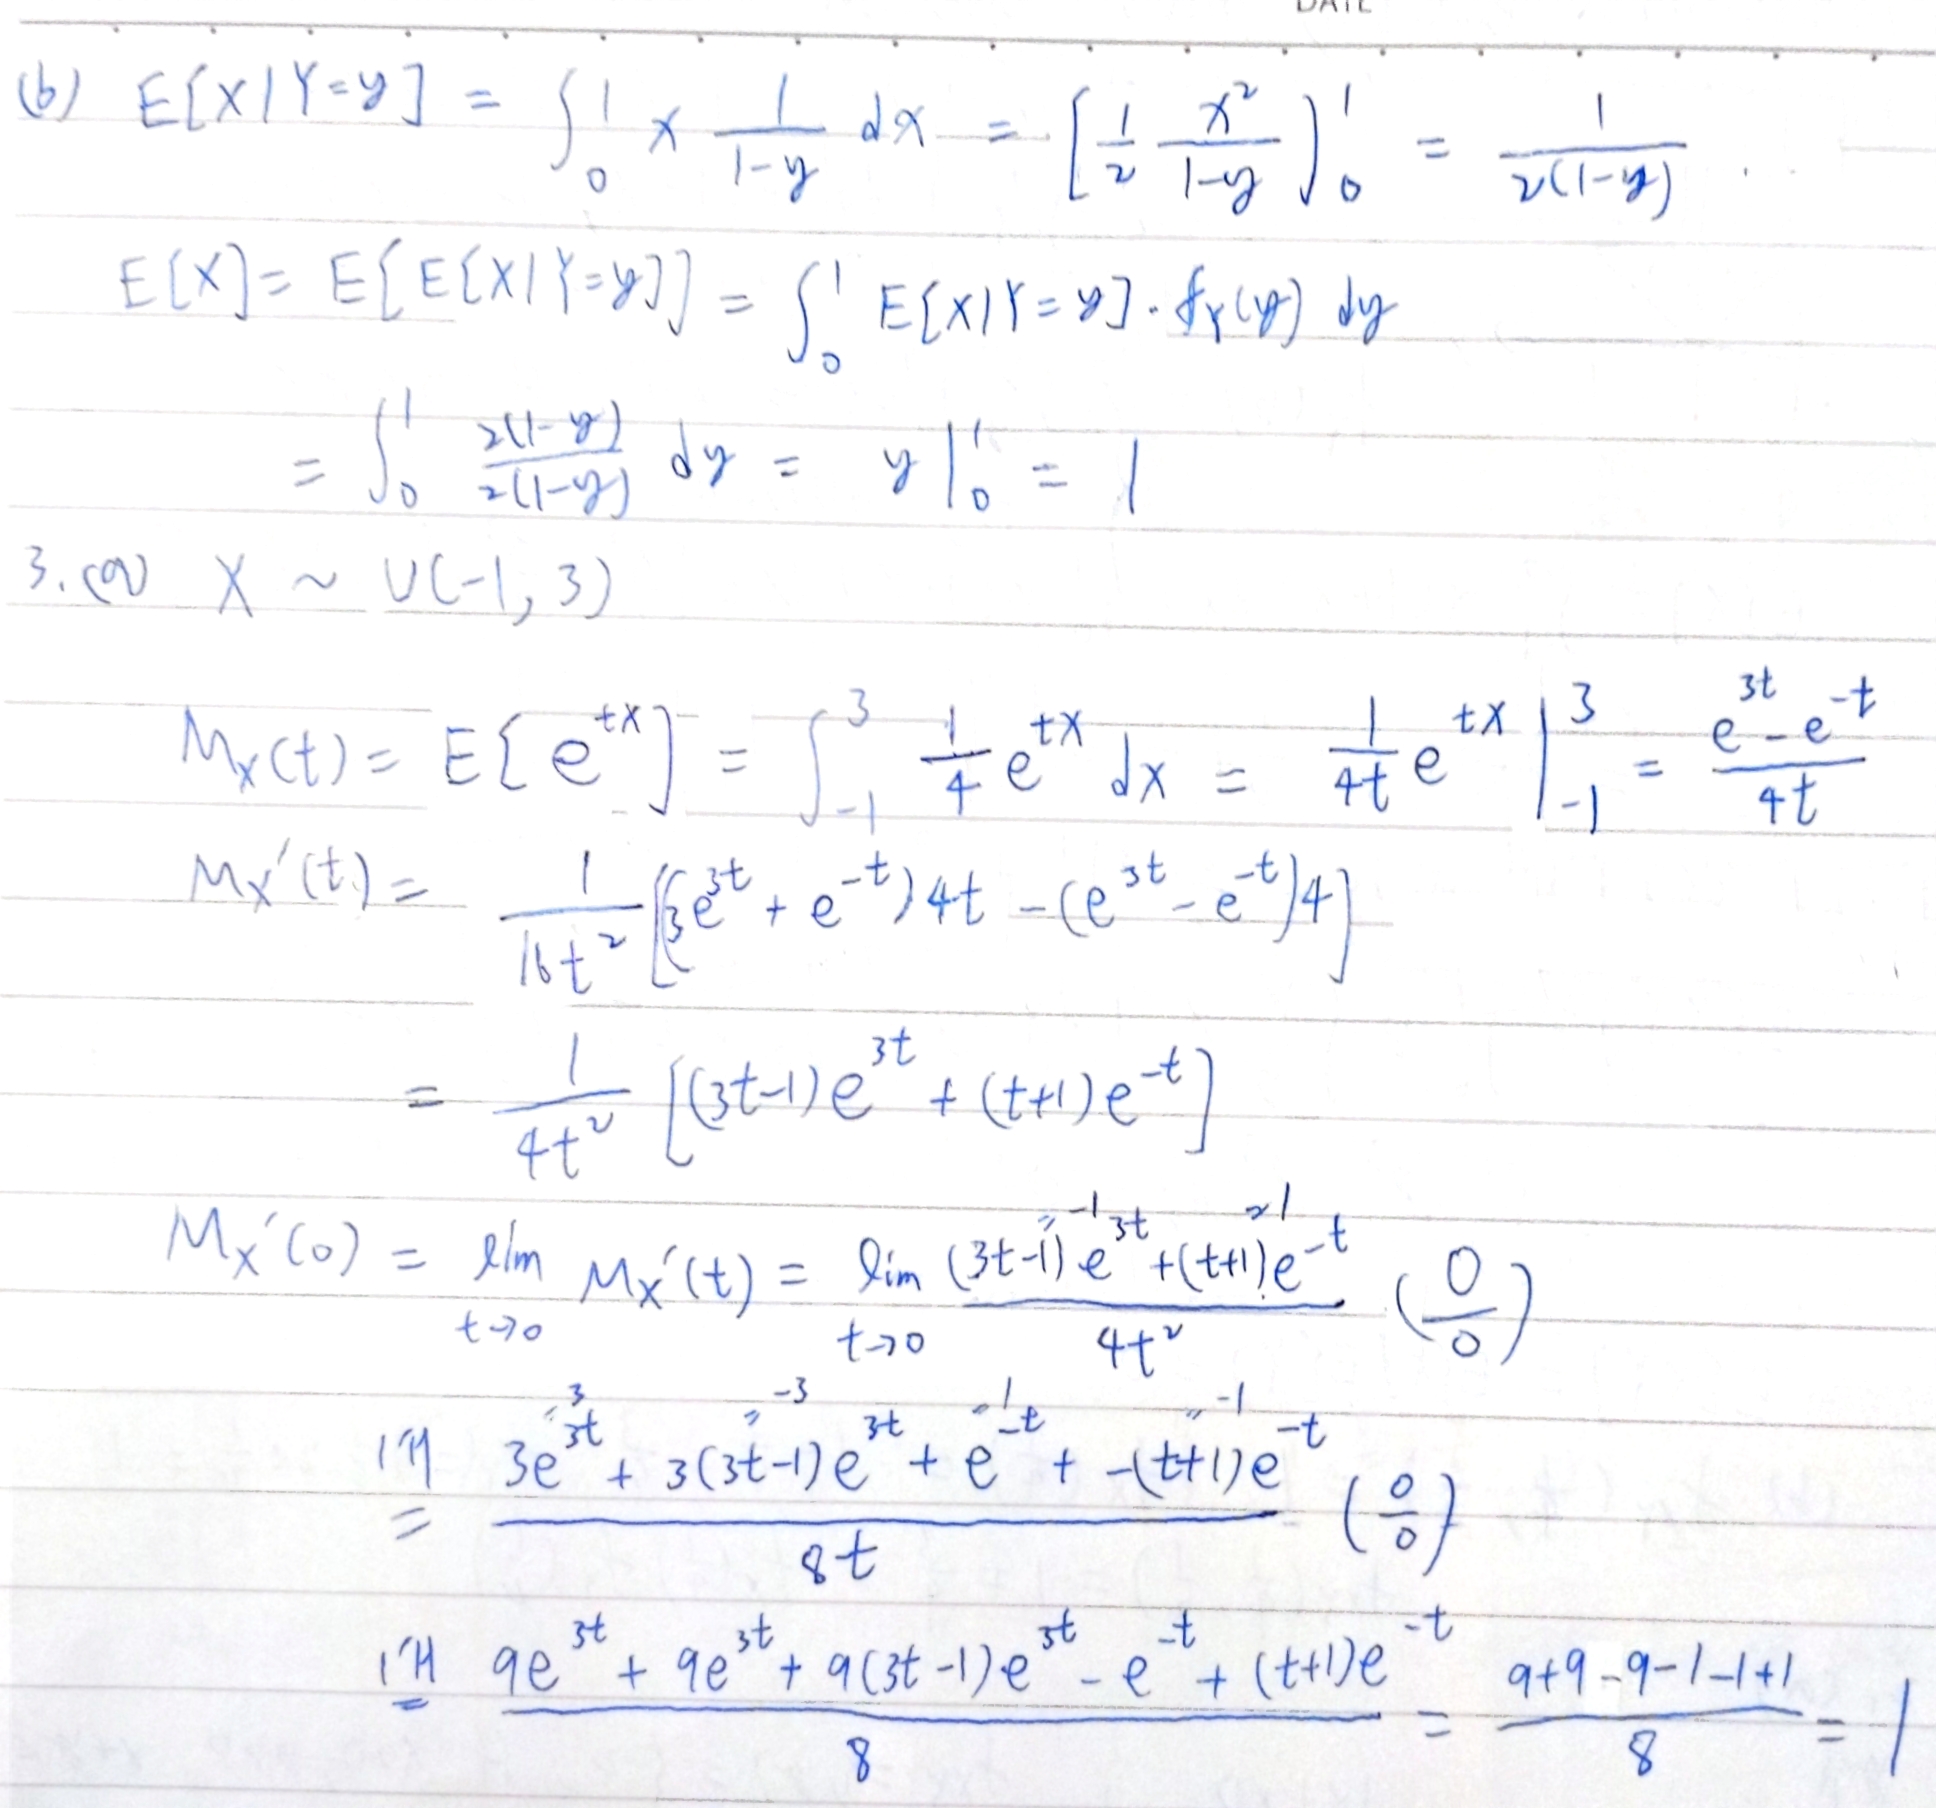 DATE
(b) E[X|Y=y] = ∫₀¹ x 1/(1-y) dx = [1/2 x²/(1-y)]₀¹ = 1/(2(1-y)).
E[X] = E[E[X|Y=y]] = ∫₀¹ E[X|Y=y]·f_Y(y) dy
= ∫₀¹ 2(1-y)/(2(1-y)) dy = y|₀¹ = 1
3. (a) X ~ U(-1, 3)
M_X(t) = E[e^{tX}] = ∫_{-1}^{3} 1/4 e^{tX} dX = 1/(4t) e^{tX} |_{-1}^{3} = (e^{3t} - e^{-t})/(4t)
M_X'(t) = 1/(16t²) [(3e^{3t} + e^{-t})4t - (e^{3t} - e^{-t})4]
= 1/(4t²) [(3t-1)e^{3t} + (t+1)e^{-t}]
M_X'(0) = lim_{t→0} M_X'(t) = lim_{t→0} ((3t-1)e^{3t} + (t+1)e^{-t})/(4t²) (0/0)
=-1 =1
l'H = (3e^{3t} + 3(3t-1)e^{3t} + e^{-t} + -(t+1)e^{-t})/(8t) (0/0)
=3 =-3 =1 =-1
l'H = (9e^{3t} + 9e^{3t} + 9(3t-1)e^{3t} - e^{-t} + (t+1)e^{-t})/8 = (9+9-9-1-1+1)/8 = 1